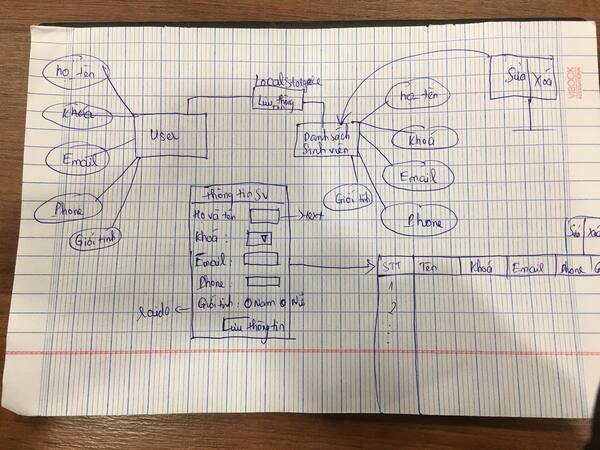 họ tên
Khoá
Email
Phone
Giới tính
User
LocalStorgace
Lưu thông tin
Danh sách
Sinh viên
họ tên
Khoá
Email
Phone
Giới tính
Sửa Xoá
VIBOOK
Thông tin SV
Họ và tên
text
Khoá :
Email :
Phone
Giới tính : Nam Nữ
raido
Lưu thông tin
Sửa Xoá
STT Tên Khoá Email Phone G
1
2